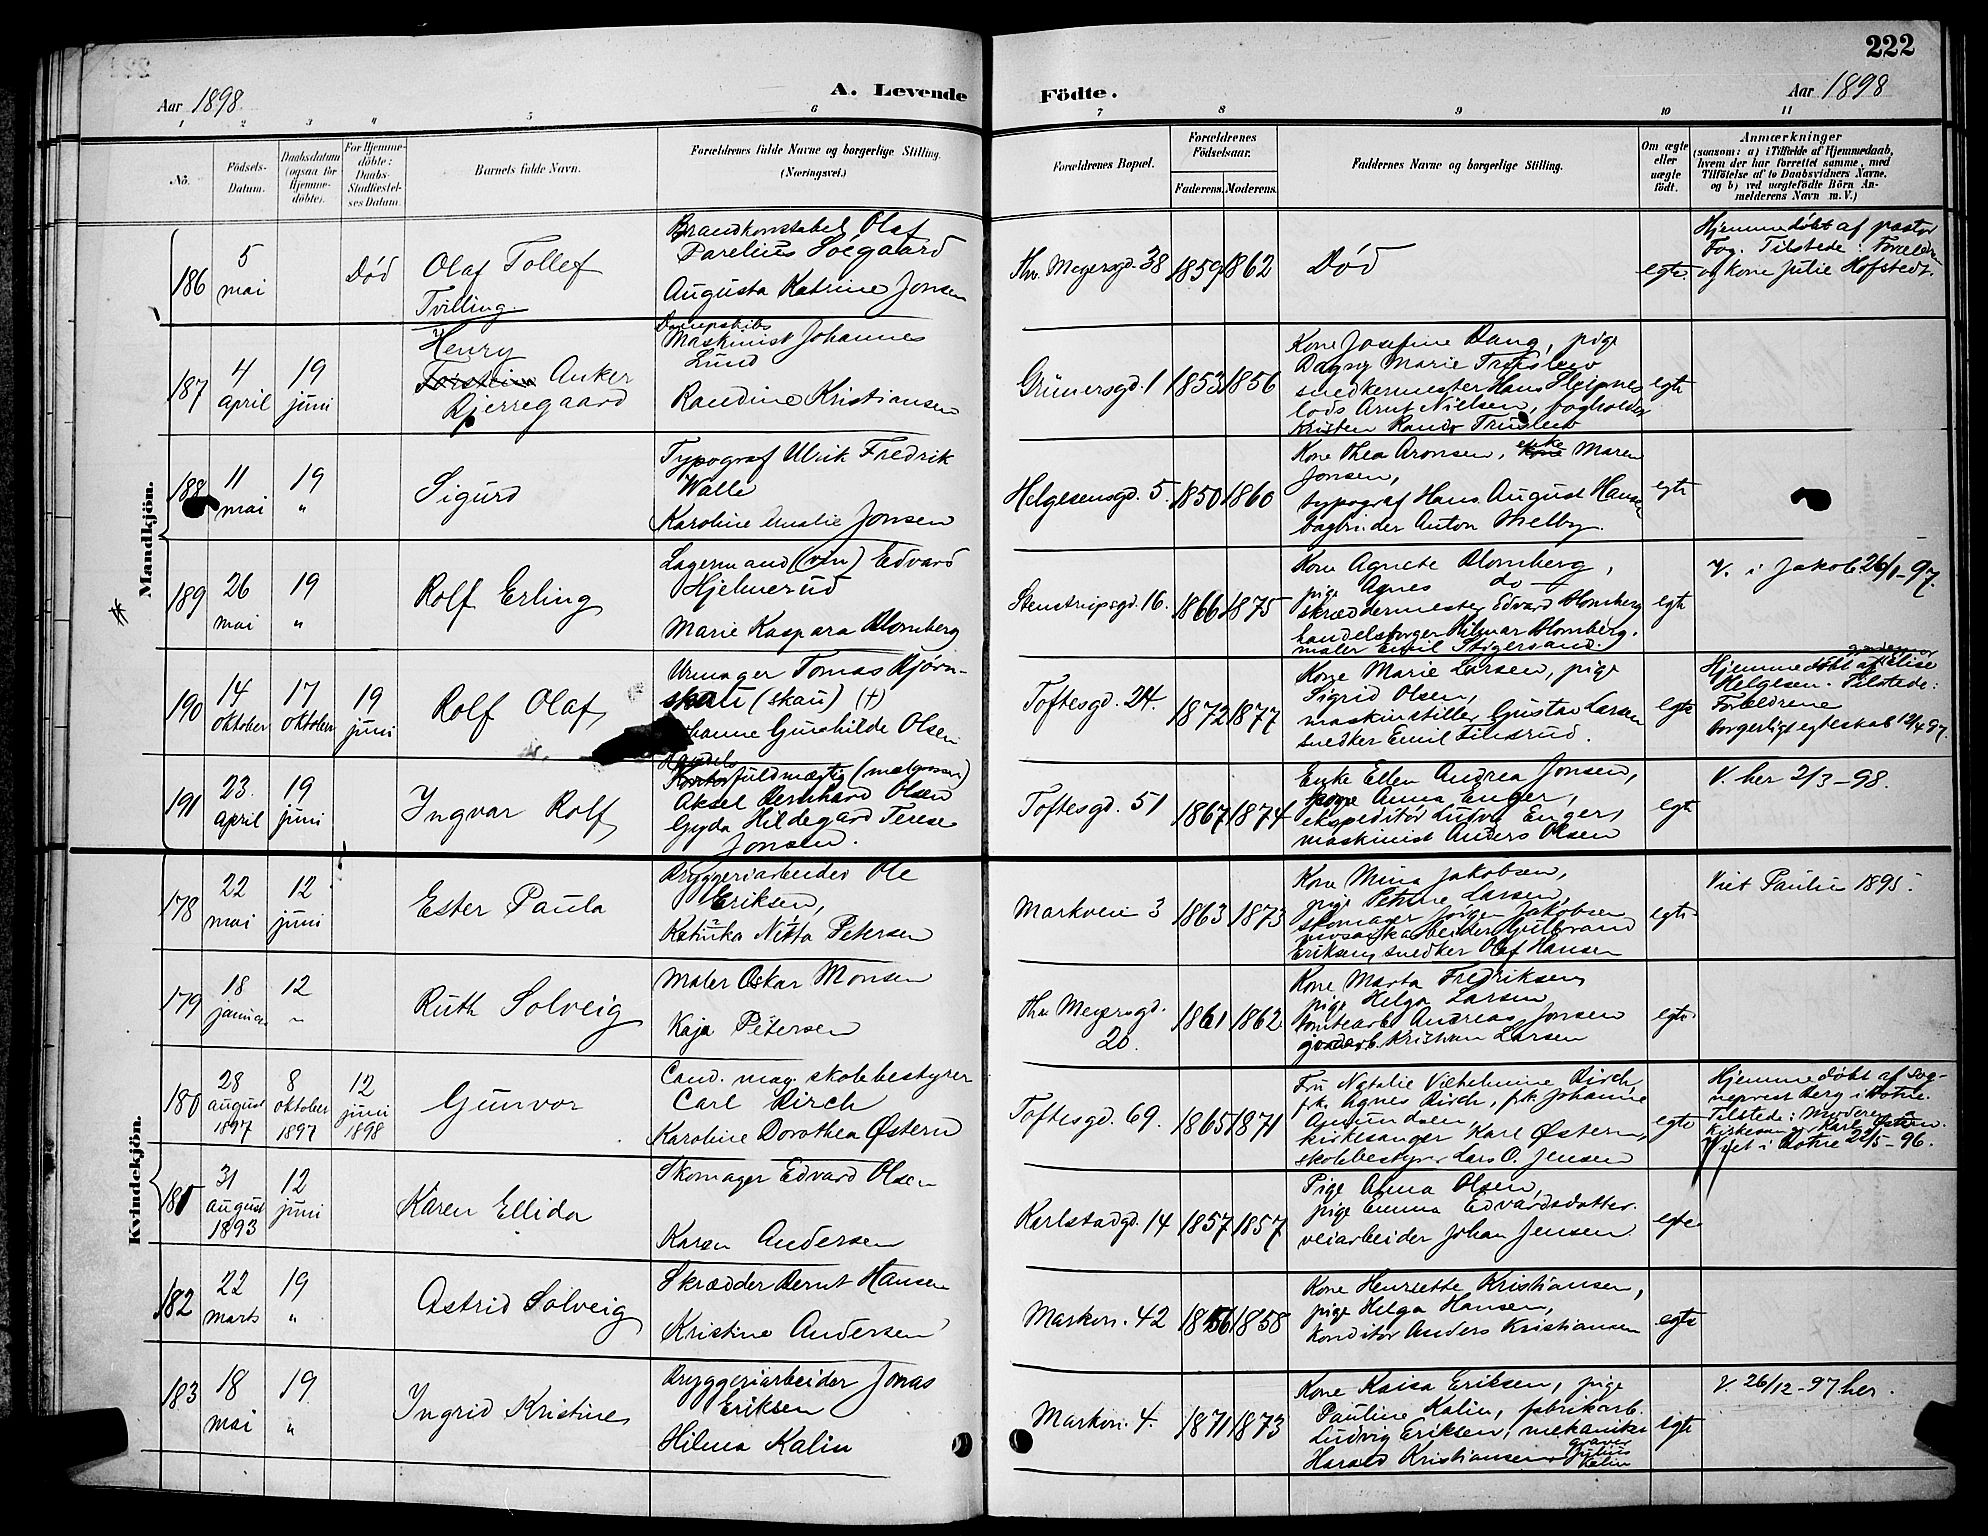 222
Aar 1898.
A. Levende
Födte.
Aar 1898
1 2 3 4 5 6 7 8 9 10 11
Nö.
Födsets-
Datum.
Daabsdatum
(ogsaa for
Hjemme-
döbte).
For Hjemme-
döbte:
Daabs-
Stadfæstel-
ses Datum.
Barnets fulde Navn.
Forældrenes fulde Navne og borgerlige Stilling.
(Næringsvei.)
Forældrenes Bopæl.
Forældrenes
Födselsaar.
Faderens. Moderens.
Faddernes Navne og borgerlige Stilling.
Om ægte
eller
uægte
födt.
Anmærkninger
(saasom: a) i Tilfælde af Hjemmedaab,
hvem der har forrettet samme, med
Tilföielse af to Daabsvidners Navne,
og b) ved uægtefödte Börn An-
melderens Navn m. V.)
Mandkjön.
186
5
mai
Död
Olaf Tollef
Tvilling
Brandkonstabel Olaf
Parelius Soegaard
Augusta Katrine Jonsen
Thv. Meyersgd. 38
1859 1862
Död
egte
Hjemmedöbt af pastor
Fog. Tilstede: Foreldre
og kone Julie Hofstedt.
187
4
april
19
juni
Henry
Anker
Bjerregaard
Dampskibs
Maskinist Johannes
Lund
Randine Kristiansen
Grünersgd. 1
1853 1856
Kone Josefine Dang, pige
Dagny Marie Truslew
snedkermester Hans
lods Arnt Nielsen, bogholder
Kristen Rands Truslew
egte
188
11
mai
19
"
Sigurd
Typograf Ulrik Fredrik
Walle
Karoline Amalie Jonsen
Helgesensgd. 5.
1850 1860
Kone Thea Aronsen, enke Maren
Jonsen,
typograf Hans August Hansen
bogbinder Anton Melby.
egte
189
26
mai
19
"
Rolf Erling
Lagermand (vin) Edvard
Hjelmerud
Marie Kaspara Blomberg
Stenstrupsgd. 16.
1866 1875
Kone Agnete Blomberg,
pige Agnes do
skræddermester Edvard Blomberg
handelsborger Hilmar Blomberg.
maler Emil Stigersand.
egte
V. i Jakob 26/1-97.
190
14
oktober
17
oktober
19
juni
Rolf Olaf
Urmager Tomas Bjørn-
skau (skau) (+)
Johanne Gunhilde Olsen
Toftesgd. 24.
1872 1877
Kone Marie Larsen, pige
Sigrid Olsen,
maskinstiller Gustav Larsen
snedker Emil Finsrud.
egte
Hjemmedöbt af Elise
Helgesen. Tilstede:
Forældrene
borgerligt egteskab 12/4 97.
191
23.
april
19
juni
Ingvar Rolf
Handels
fuldmægtig
Aksel Bernhard Olsen
Gyda Hildegard Terese
Jonsen.
Toftesgd. 51
1867 1874
Enke Ellen Andrea Jonsen,
pige Anna Enger,
ekspeditör Ludvig Enger,
maskinist Anders Olsen
egte
V. her 2/3-98.
Kvindekjön.
178
22
mai
12
juni
Ester Paula
Bryggeriarbeider Ole
Eriksen,
Katinka Nitta Petersen
Markvein 3
1863 1873
Kone Mina Jakobsen,
pige Petrine Larsen,
skomager Jörgen Jakobsen
Gulbrand
Eriksen, snedker Olaf Hansen
egte
Viet Paulus 1895.
179
18
januar
12
"
Ruth Solveig
Maler Oskar Monsen
Kaja Petersen
Thv. Meyersgd.
20.
1861 1862
Kone Marta Fredriksen,
pige Helga Larsen
tomtearb. Andreas Jonsen
Kristian Larsen
egte
180
28
august
1897
8
oktober
1897
12
juni
1898
Gunvor
Cand. mag. skolebestyrer
Carl Birch
Karoline Dorothea Østern
Toftesgd. 69.
1865 1871
Fru Natalie Vilhelmine Birch,
frk. Agnes Birch, frk. Johanne
Amundsen
kirkesanger Karl Østern,
skolebestyrer Lars O. Jensen
egte
Hjemmedöbt af Sog-
neprest Berg i Botne.
Tilstede: Moderen
kirkesanger Karl Østern.
Viet i Botne 22/5-96.
181
31
august
1893
12
juni
Karen Ellida
Skomager Edvard Olsen
Karen Andersen
Karlstadgd. 14
1857 1857
Pige Anna Olsen,
pige Emma Edvardsdatter.
veiarbeider Johan Jensen
egte
182
22
marts
19
"
Astrid Solveig
Skrædder Bernt Hansen
Kristine Andersen
Markvn. 42
1856 1858
Kone Henriette Kristiansen,
pige Helga Hansen,
konditor Anders Kristiansen
egte
183
18
mai
19
"
Ingrid Kristine
Bryggeriarbeider Jonas
Eriksen
Hilma Kalin
Markvn. 4.
1871 1873
Kone Kaisa Eriksen, pige
Pauline Kalin, fabrikarb.
Ludvig Eriksen, mekaniker
Harald Kristiansen, gravør
Julius
Kalin
egte
V. 26/12-97 her.